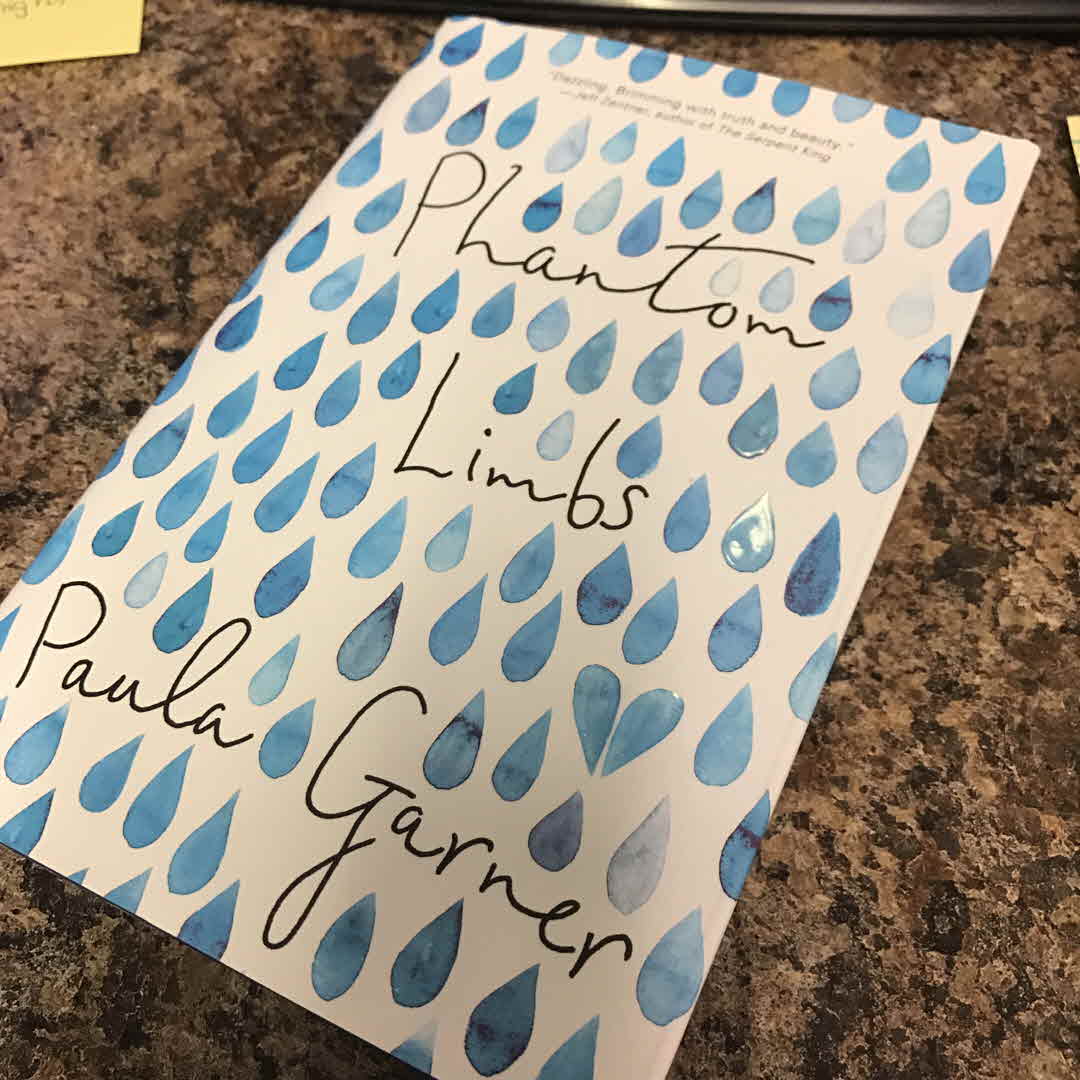 "Dazzling. Brimming with truth and beauty."
—Jeff Zentner, author of The Serpent King
Phantom
Limbs
Paula
Garner